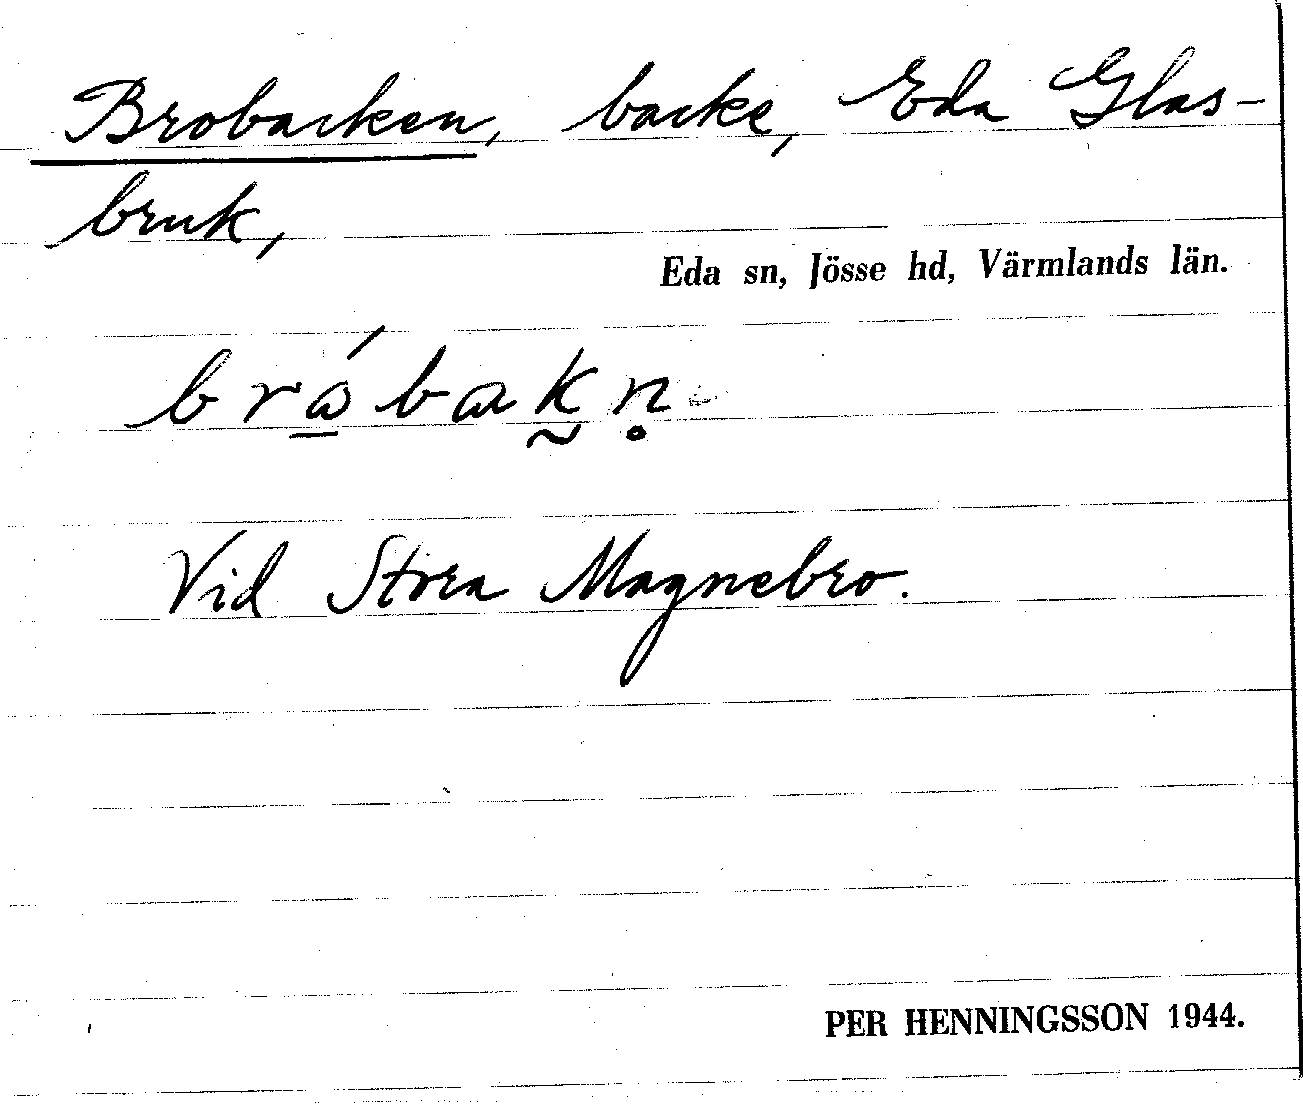 Brobacken, backe, Eda Glas-
bruk,
Eda sn, Jösse hd, Värmlands län.
brώ̲bak̰n̥
Vid Stora Magnebro.
PER HENNINGSSON 1944.